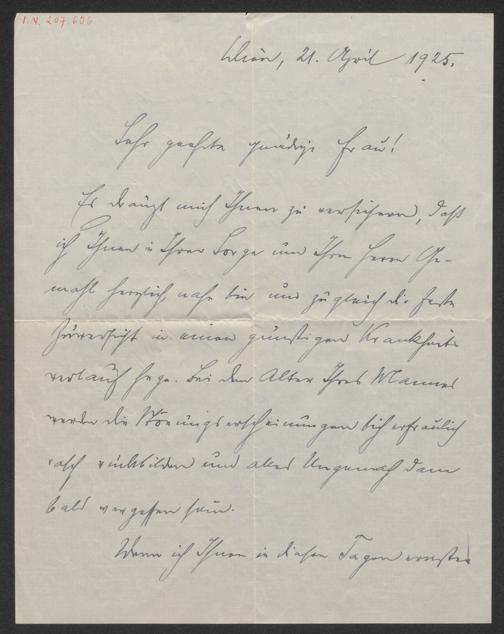 I.N. 207.606
Wien, 21. April 1925.
Sehr geehrte gnädige Frau!
Es drängt mich Ihnen zu versichern, daß
ich Ihnen in Ihrer Sorge um Ihren Herrn Ge-
mahl herzlich nahe bin und zugleich die feste
Zuversicht in einen günstigen Krankheits-
verlauf hege. Bei dem Alter Ihres Mannes
werden die Störungserscheinungen sich erfreulich
rasch rückbilden und alles Ungemach dann
bald vergessen sein.
Wenn ich Ihnen in diesen Tagen ernster